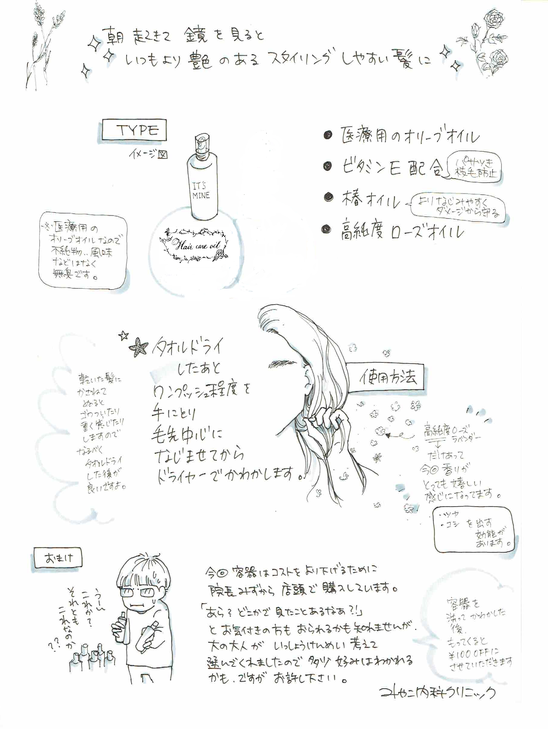 朝 起きて 鏡を見ると
いつもより 艶のある スタイリング しやすい髪に
TYPE
イメージ図
IT'S
MINE
Hair care oil
※医療用の
オリーブオイルなので
不純物、風味
などはなく
無臭です。
● 医療用のオリーブオイル
● ビタミンE配合
パサつき
枝毛防止
● 椿オイル
よりなじみやすく
ダメージから守る
● 高純度ローズオイル
タオルドライ
したあと
ワンプッシュ程度を
手にとり
毛先中心に
なじませてから
ドライヤーでかわかします。
乾いた髪に
かさねて
ぬると
ごわついたり
重く感じたり
しますので
なるべく
タオルドライ
した後が
良いですよ。
使用方法
高純度ローズ、
ラベンダー
だけあって
今回香りが
とっても嬉しい
感じになってます。
・ツヤ
・コシ を出す
効能が
あります。
おまけ
うーん
これか?
それとも
これなのか
??
今回 容器はコストをより下げるために
院長みずから 店頭で 購入しています。
「あら?どこかで見たことあるなあ?!」
と お気付きの方も おられるかも知れませんが、
大の大人が いっしょうけんめい 考えて
選んでくれましたので 多少 好みはわかれる
かも、ですが お許し下さい。
容器を
洗って かわかした
後
もってくると
¥100 OFFに
させていただきます
みやこ内科クリニック